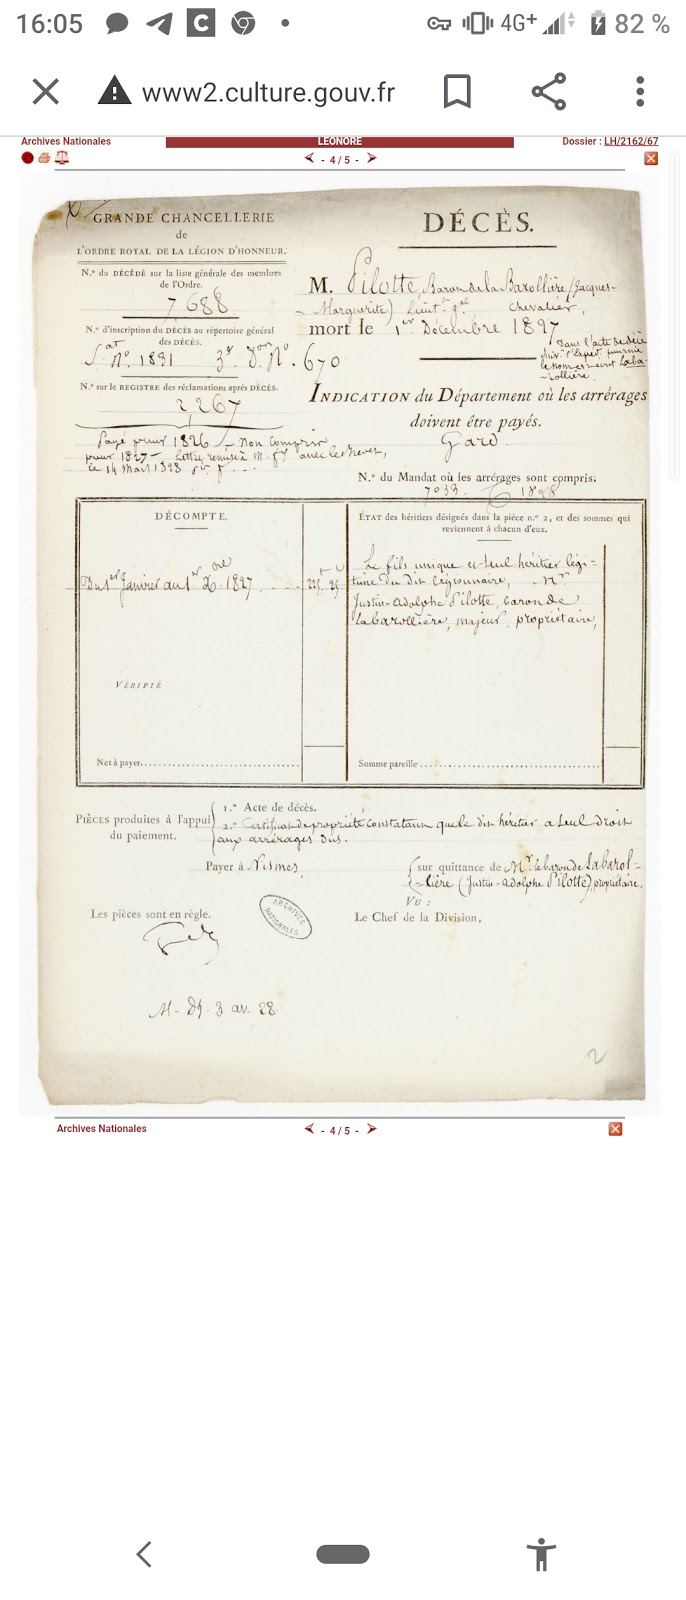 16:05
4G+
82 %
www2.culture.gouv.fr
Archives Nationales
LEONORE
Dossier : LH/2162/67
- 4 / 5 -
GRANDE CHANCELLERIE
de
L'ORDRE ROYAL DE LA LÉGION D'HONNEUR.
N.º du DÉCÉDÉ sur la liste générale des membres
de l'Ordre.
7,688
N.º d'inscription du DÉCÈS au répertoire général
des DÉCÈS.
Nº. 1891 3e. Don Nº. 670
N.º sur le REGISTRE des réclamations après DÉCÈS.
2,267
Payé pour 1826 - non compris
pour 1827 - lettre remise à M.
le 14 Mars 1828
DÉCÈS.
M. Pilotte, Baron de la Barollière (Jacques-
Marguerite) Lieut.t g.al chevalier,
mort le 1er Décembre 1827
Dans l'acte de décès
INDICATION du Département où les arrérages
doivent être payés.
Gard.
N.º du Mandat où les arrérages sont compris:
7033. 1828
DÉCOMPTE.
Du 1er Janvier au 1er Xbre 1827
VÉRIFIÉ
Net à payer
ÉTAT des héritiers désignés dans la pièce n.º 2, et des sommes qui
reviennent à chacun d'eux.
Le fils unique et seul héritier légi-
time du dit légionnaire, Mr.
Justin-Adolphe Pilotte, baron de
labarollière, majeur, propriétaire,
Somme pareille
PIÈCES produites à l'appui
du paiement.
1.º Acte de décès.
2.º Certificat de propriété constatant que le dit héritier a seul droit
aux arrérages dus.
Payer à Nismes,
sur quittance de Mr. le baron de Labarol-
lière (Justin-Adolphe Pilotte), propriétaire.
VU :
Les pièces sont en règle.
Le Chef de la Division,
ARCHIVES
NATIONALES
3 av. 28.
2
Archives Nationales
- 4 / 5 -